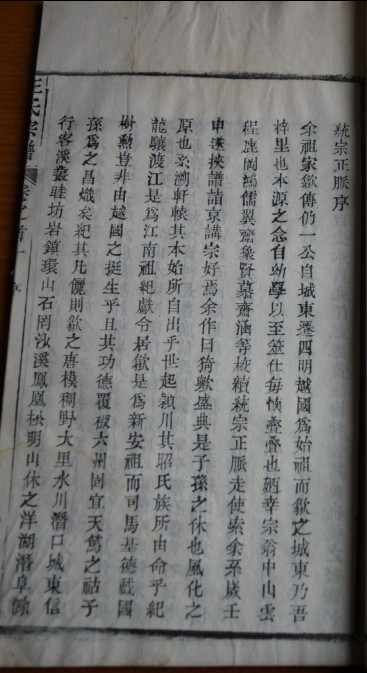 統宗正脈序
余祖家歙傳仍一公自城東遷四明越國爲始祖而歙之城東乃吾
梓里也本源之念自幼學以至筮仕每懊虀虀也廼幸宗翁中山雲
程鹿岡鴻儒翼齋象賢慕齋涵等校續統宗正脈走使索余系歲壬
申溪挾譜詣京講宗好焉余作曰猗歟盛典是子孫之休也風化之
原也系溯軒轅其本始所自出乎世起潁川其昭氏族所由命乎紀
龍驤渡江是爲江南祖紀獻令居歙是爲新安祖而司馬基德戴國
樹勲豈非由越國之挺生乎且其功德覆被六州固宜天篤之祜子
孫爲之昌熾矣紀其凡儷則歙之唐模稠野大里水川潛口城東信
行客溪叢睦坊岩鎮環山石罔沙溪鳳凰松明山休之洋湖潛阜餘
王氏宗譜
卷之首